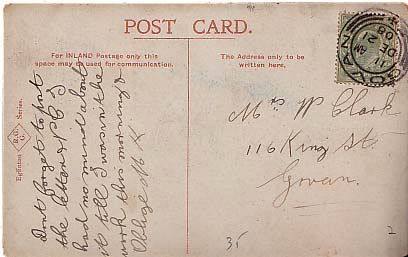 POST CARD.
For INLAND Postage only this
space may be used for communication.
The Address only to be
written here.
Dont forget to post
the letter & P.C. I
had no mind about
it till I was in the
work this morning &
Oblige M K
Mrs W Clark
116 King St.
Govan.
GOVAN
DE 21
08
Eglinton
R.G.
G.
Series.
35
2